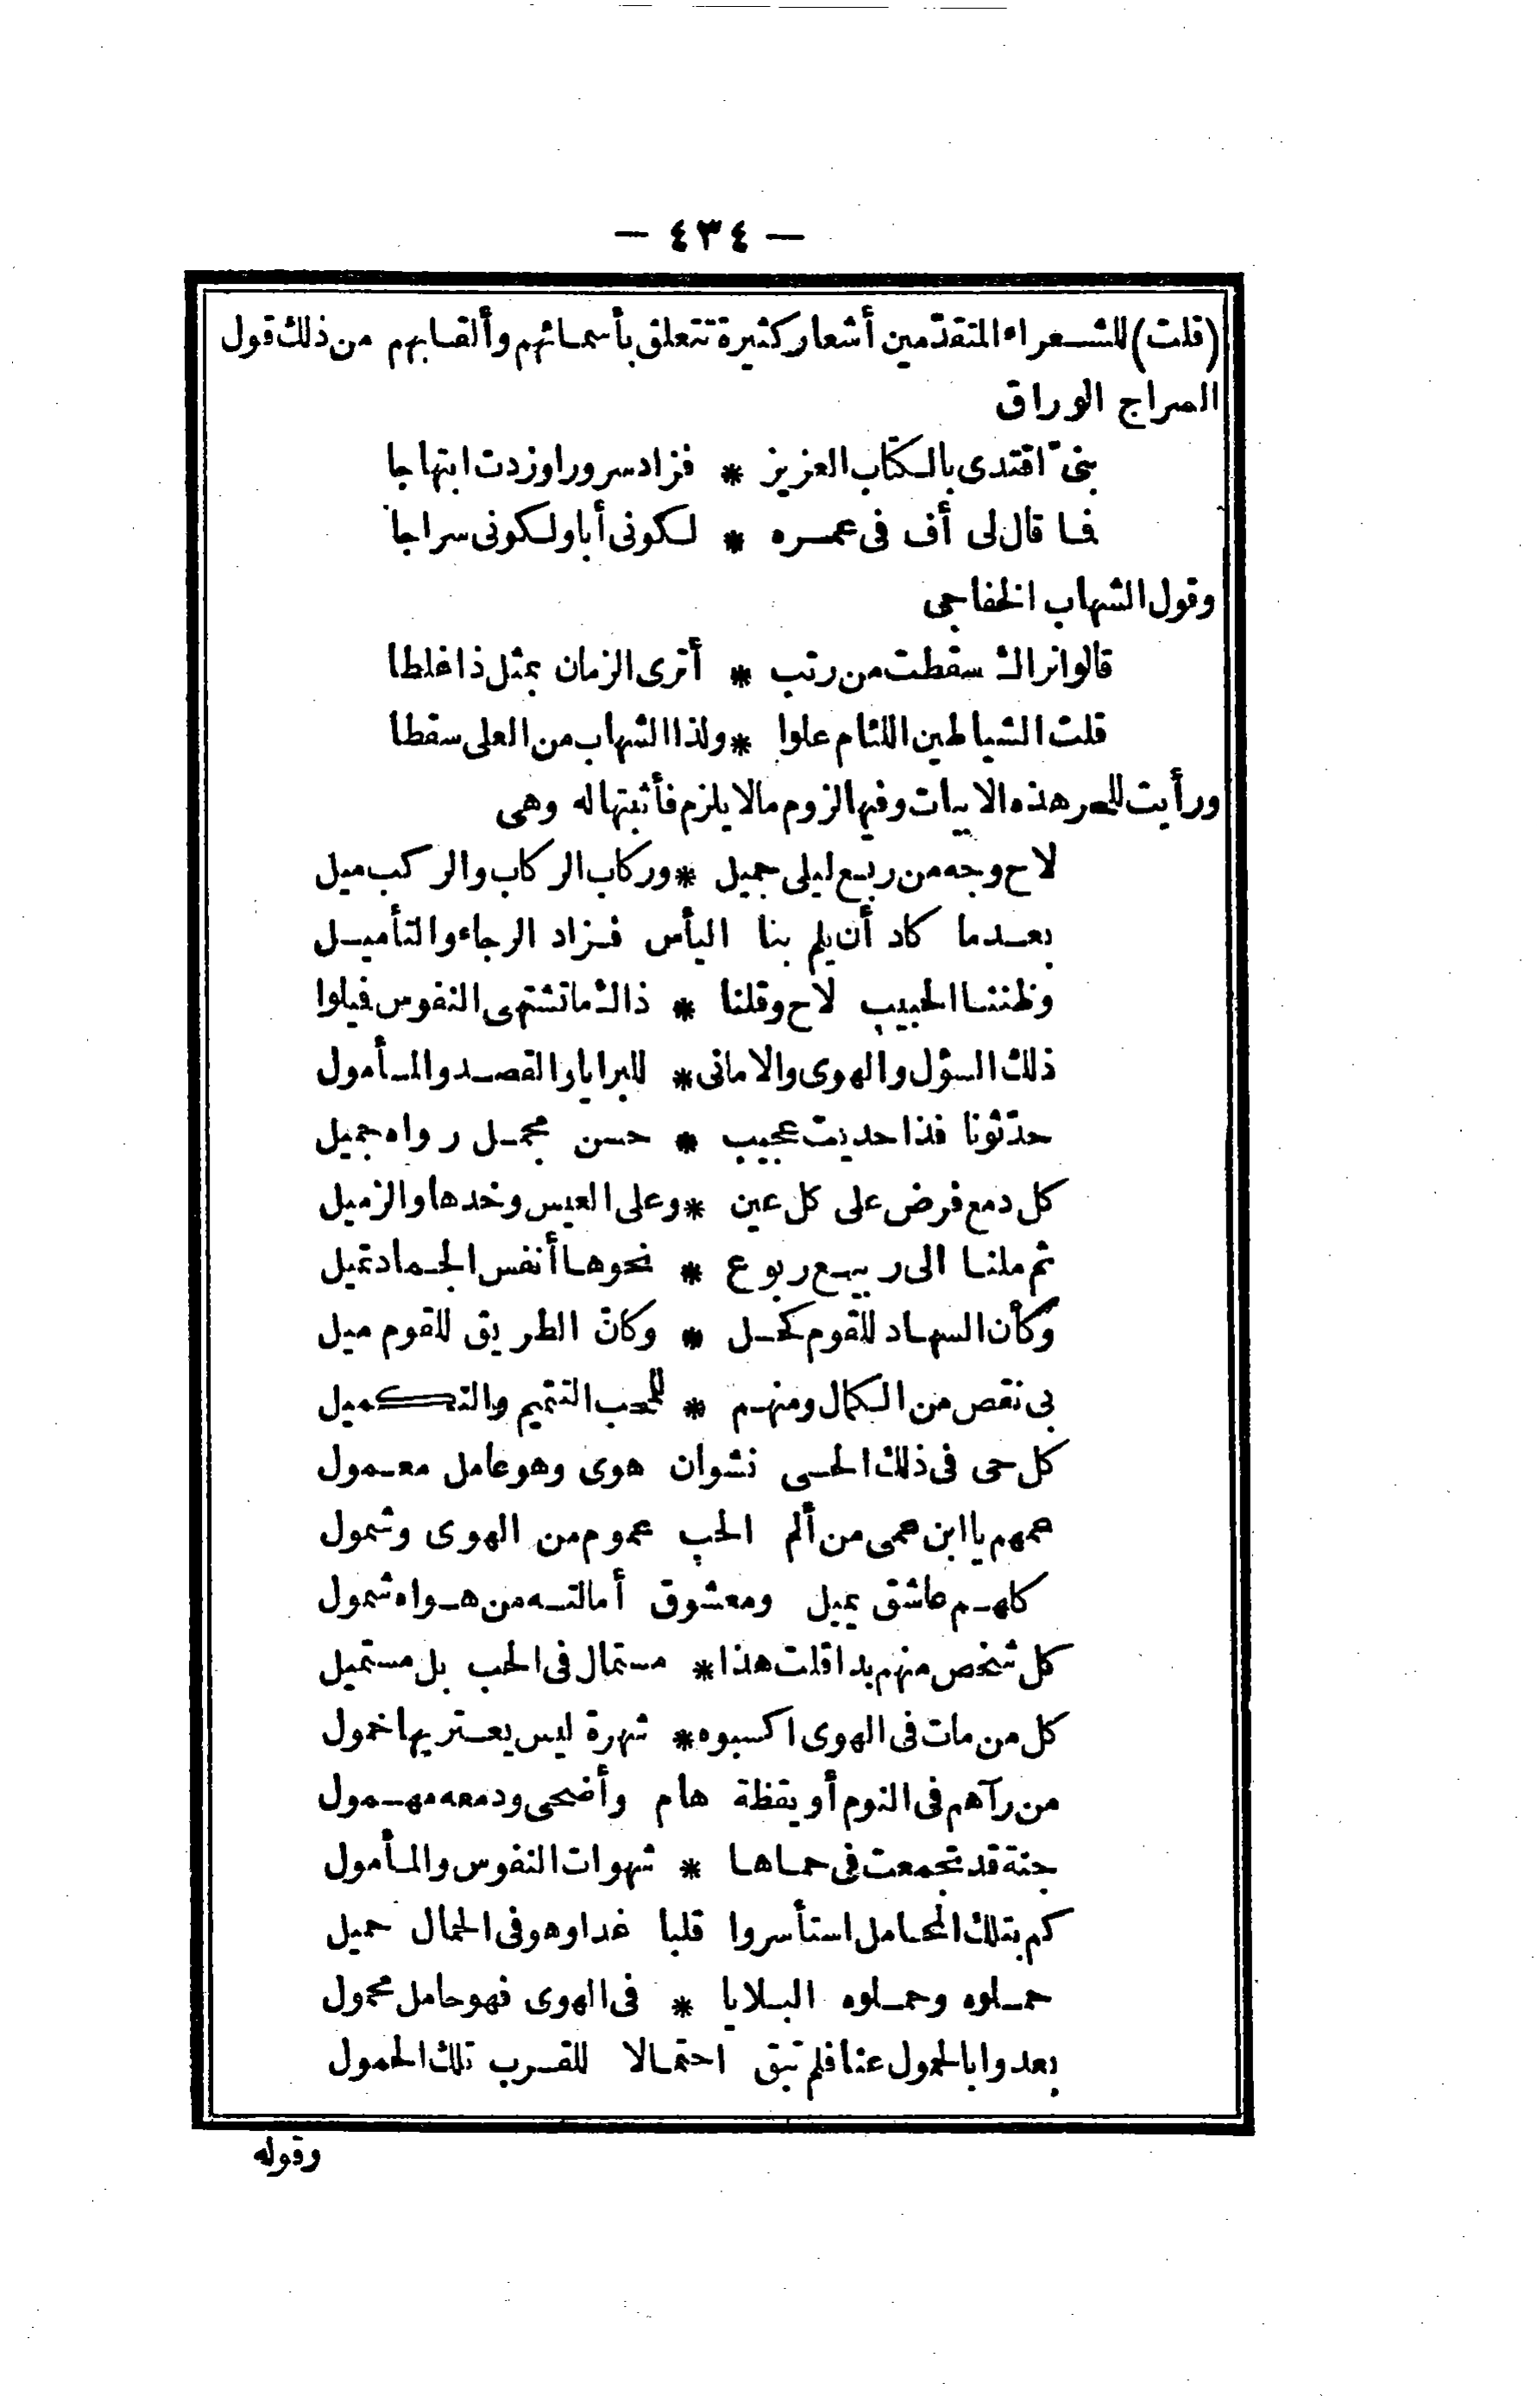 — ٤٣٤ —
(قلت) للشعراء المتقدّمين أشعار كثيرة تتعلق بأسمائهم وألقابهم من ذلك قول
السراج الوراق
بنىّ اقتدى بالكتاب العزيز * فزاد سرورا وزدت ابتهاجا
فما قال لى أف فى عمره * لكونى أبا ولكونى سراجا
وقول الشهاب الخفاجى
قالوا نراك سقطت من رتب * أترى الزمان بمثل ذا غلطا
قلت الشياطين اللئام علوا * ولذا الشهاب من العلى سقطا
ورأيت للبحر هذه الابيات وفيها لزوم مالا يلزم فأثبتها له وهى
لاح وجه من ربع ليلى جميل * وركاب الركاب والركب ميل
بعد ما كاد أن يلم بنا اليأس فزاد الرجاء والتأميل
وظننا الحبيب لاح وقلنا * ذاك ما تشتهى النفوس فميلوا
ذلك السؤل والهوى والامانى * للبرايا والقصد والمأمول
حدّثونا فذا حديث عجيب * حسن مجمل رواه جميل
كل دمع فرض على كل عين * وعلى العيس وخدها والزميل
ثم ملنا الى ربيع ربوع * نحوها أنفس الجماد تميل
وكأن السهاد للقوم كحل * وكانّ الطريق للقوم ميل
بى نقص من الكمال ومنهم * للمحب التتميم والتكميل
كل حى فى ذلك الحى نشوان هوى وهو عامل معمول
عمهم يا ابن عمى من ألم الحب عموم من الهوى وشمول
كلهم عاشق يميل ومعشوق أمالته من هواه شمول
كل شخص منهم بدا قلت هذا * مستمال فى الحب بل مستميل
كل من مات فى الهوى اكسبوه * شهرة ليس يعتريها خمول
من رآهم فى النوم أو يقظة هام وأضحى ودمعه مهمول
جنة قد تجمعت فى حماها * شهوات النفوس والمأمول
كم بتلك المحامل استأسروا قلبا غدا وهو فى الجمال حميل
حملوه وحملوه البلايا * فى الهوى فهو حامل محمول
بعدوا بالحمول عنا فلم تبق احتمالا للقرب تلك الحمول
وقوله